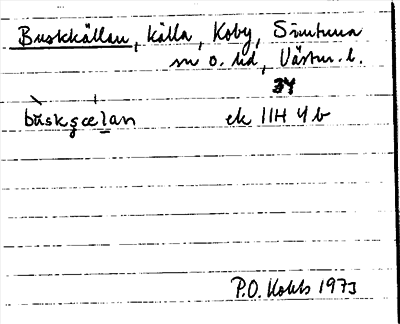 Buskkällan, källa, Koby, Simtuna
sn o. hd, Västm. l.
34
buskçælan ek 11H 4b
P.O. 1973